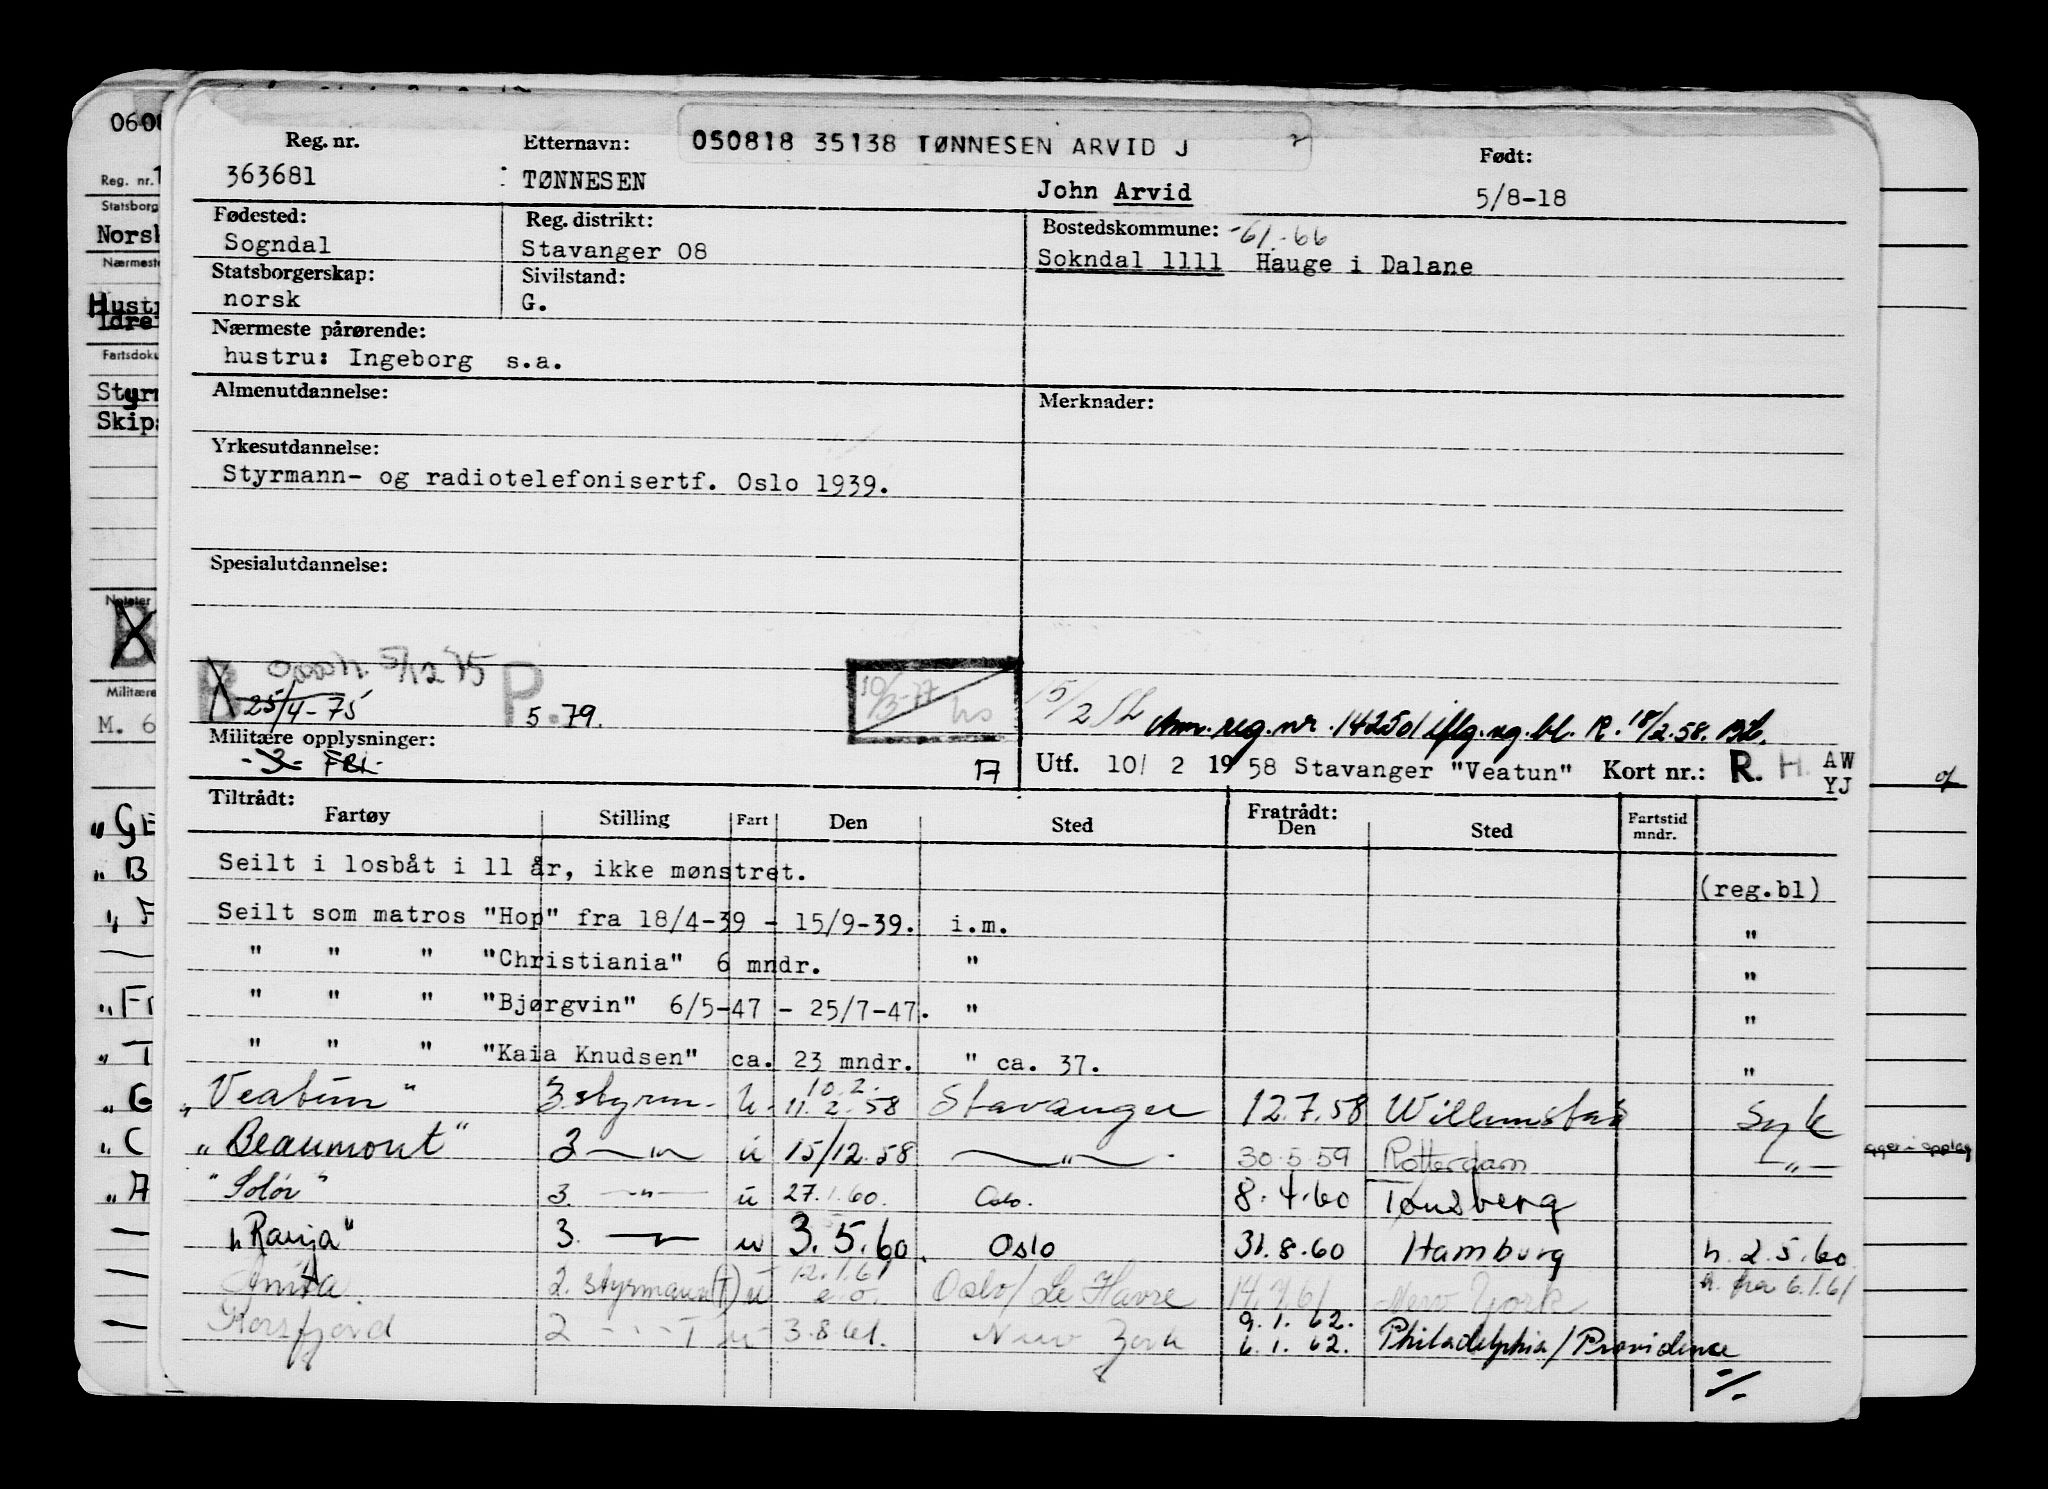 050818 35138 TØNNESEN ARVID J
Reg. nr. Etternavn: Født:
363681 TØNNESEN John Arvid 5/8-18
Fødested: Reg. distrikt: Bostedskommune: -61-66
Sogndal Stavanger 08 Sokndal 1111 Hauge i Dalane
Statsborgerskap: Sivilstand:
norsk G.
Nærmeste pårørende:
hustru: Ingeborg s.a.
Almenutdannelse: Merknader:
Yrkesutdannelse:
Styrmann- og radiotelefonisertf. Oslo 1939.
Spesialutdannelse:
B 5/12 75 P. 10/3-77
25/4-75 5.79. 15/2 Am. reg. nr. 142501 iflg. rg. bl. R. 18/2.58.
Militære opplysninger:
-3- FRI-
Utf. 10/ 2 1958 Stavanger "Veatun" Kort nr.: R. H. AW
YJ
Tiltrådt: Fratrådt:
Fartøy Stilling Fart Den Sted Den Sted Fartstid mndr.
Seilt i losbåt i 11 år, ikke mønstret. (reg.bl)
Seilt som matros "Hop" fra 18/4-39 - 15/9-39. i.m. "
" " " "Christiania" 6 mndr. " "
" " " "Bjørgvin" 6/5-47 - 25/7-47. " "
" " " "Kaia Knudsen" ca. 23 mndr. " ca. 37. "
"Veatun" 3.styrm. u. 10.2. 11.2.58 Stavanger 12.7.58 Willemstad Syk
"Beaumont" 3 —"— u 15/12.58 —"— 30.5.59 Rotterdam —"—
"Solør" 3. —"— u 27.1.60. Oslo. 8.4.60 Tønsberg
"Ranja" 3. —"— u 3.5.60. Oslo 31.8.60 Hamburg h. 2.5.60
Anita. 2. styrmann (T) u 12.1.61 e.o. Oslo/Le Havre 14.7.61 New York h. fra 6.1.61
Korsfjord 2 —"— T u 3.8.61. New York 9.1.62. 6.1.62. Philadelphia/Providence
%
Reg. nr. 1
Statsborg
Norsk
Nærmeste
Hustr
Fartsdoku
Styrm
Skips
Militære
M. 6